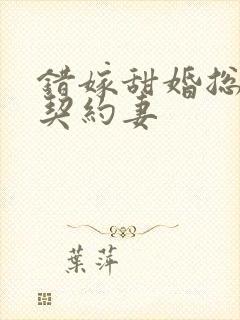 錯嫁甜婚總
契約妻
葉萍